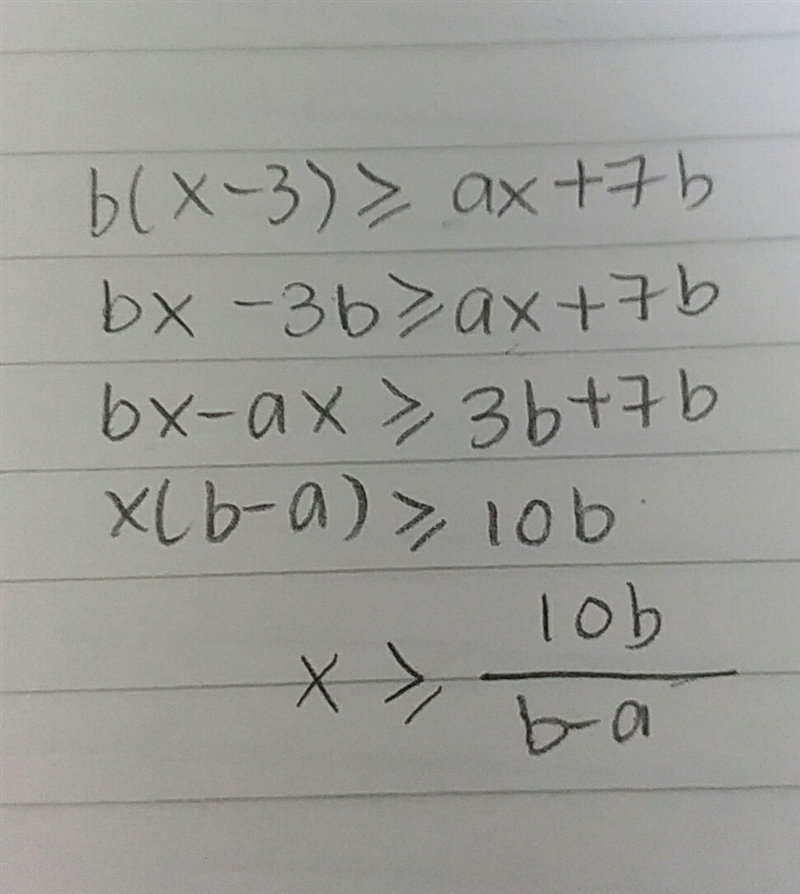 b(x-3) ≥ ax+7b
bx -3b ≥ ax+7b
bx-ax ≥ 3b+7b
x(b-a) ≥ 10b
x ≥ 10b/b-a